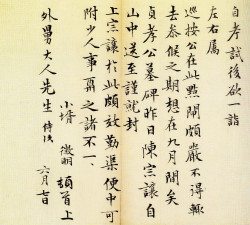 自考試後欲一詣
左右屬
巡按公在此點閘頗嚴不得輒
去參候之期想在九月間矣
貞孝公墓碑昨日陳宗讓自
山中送至謹就封
上宗讓於此頗放勤渠便中可
附少人事之諸不一
小壻徵明頓首上
外舅大人先生侍次 六月日